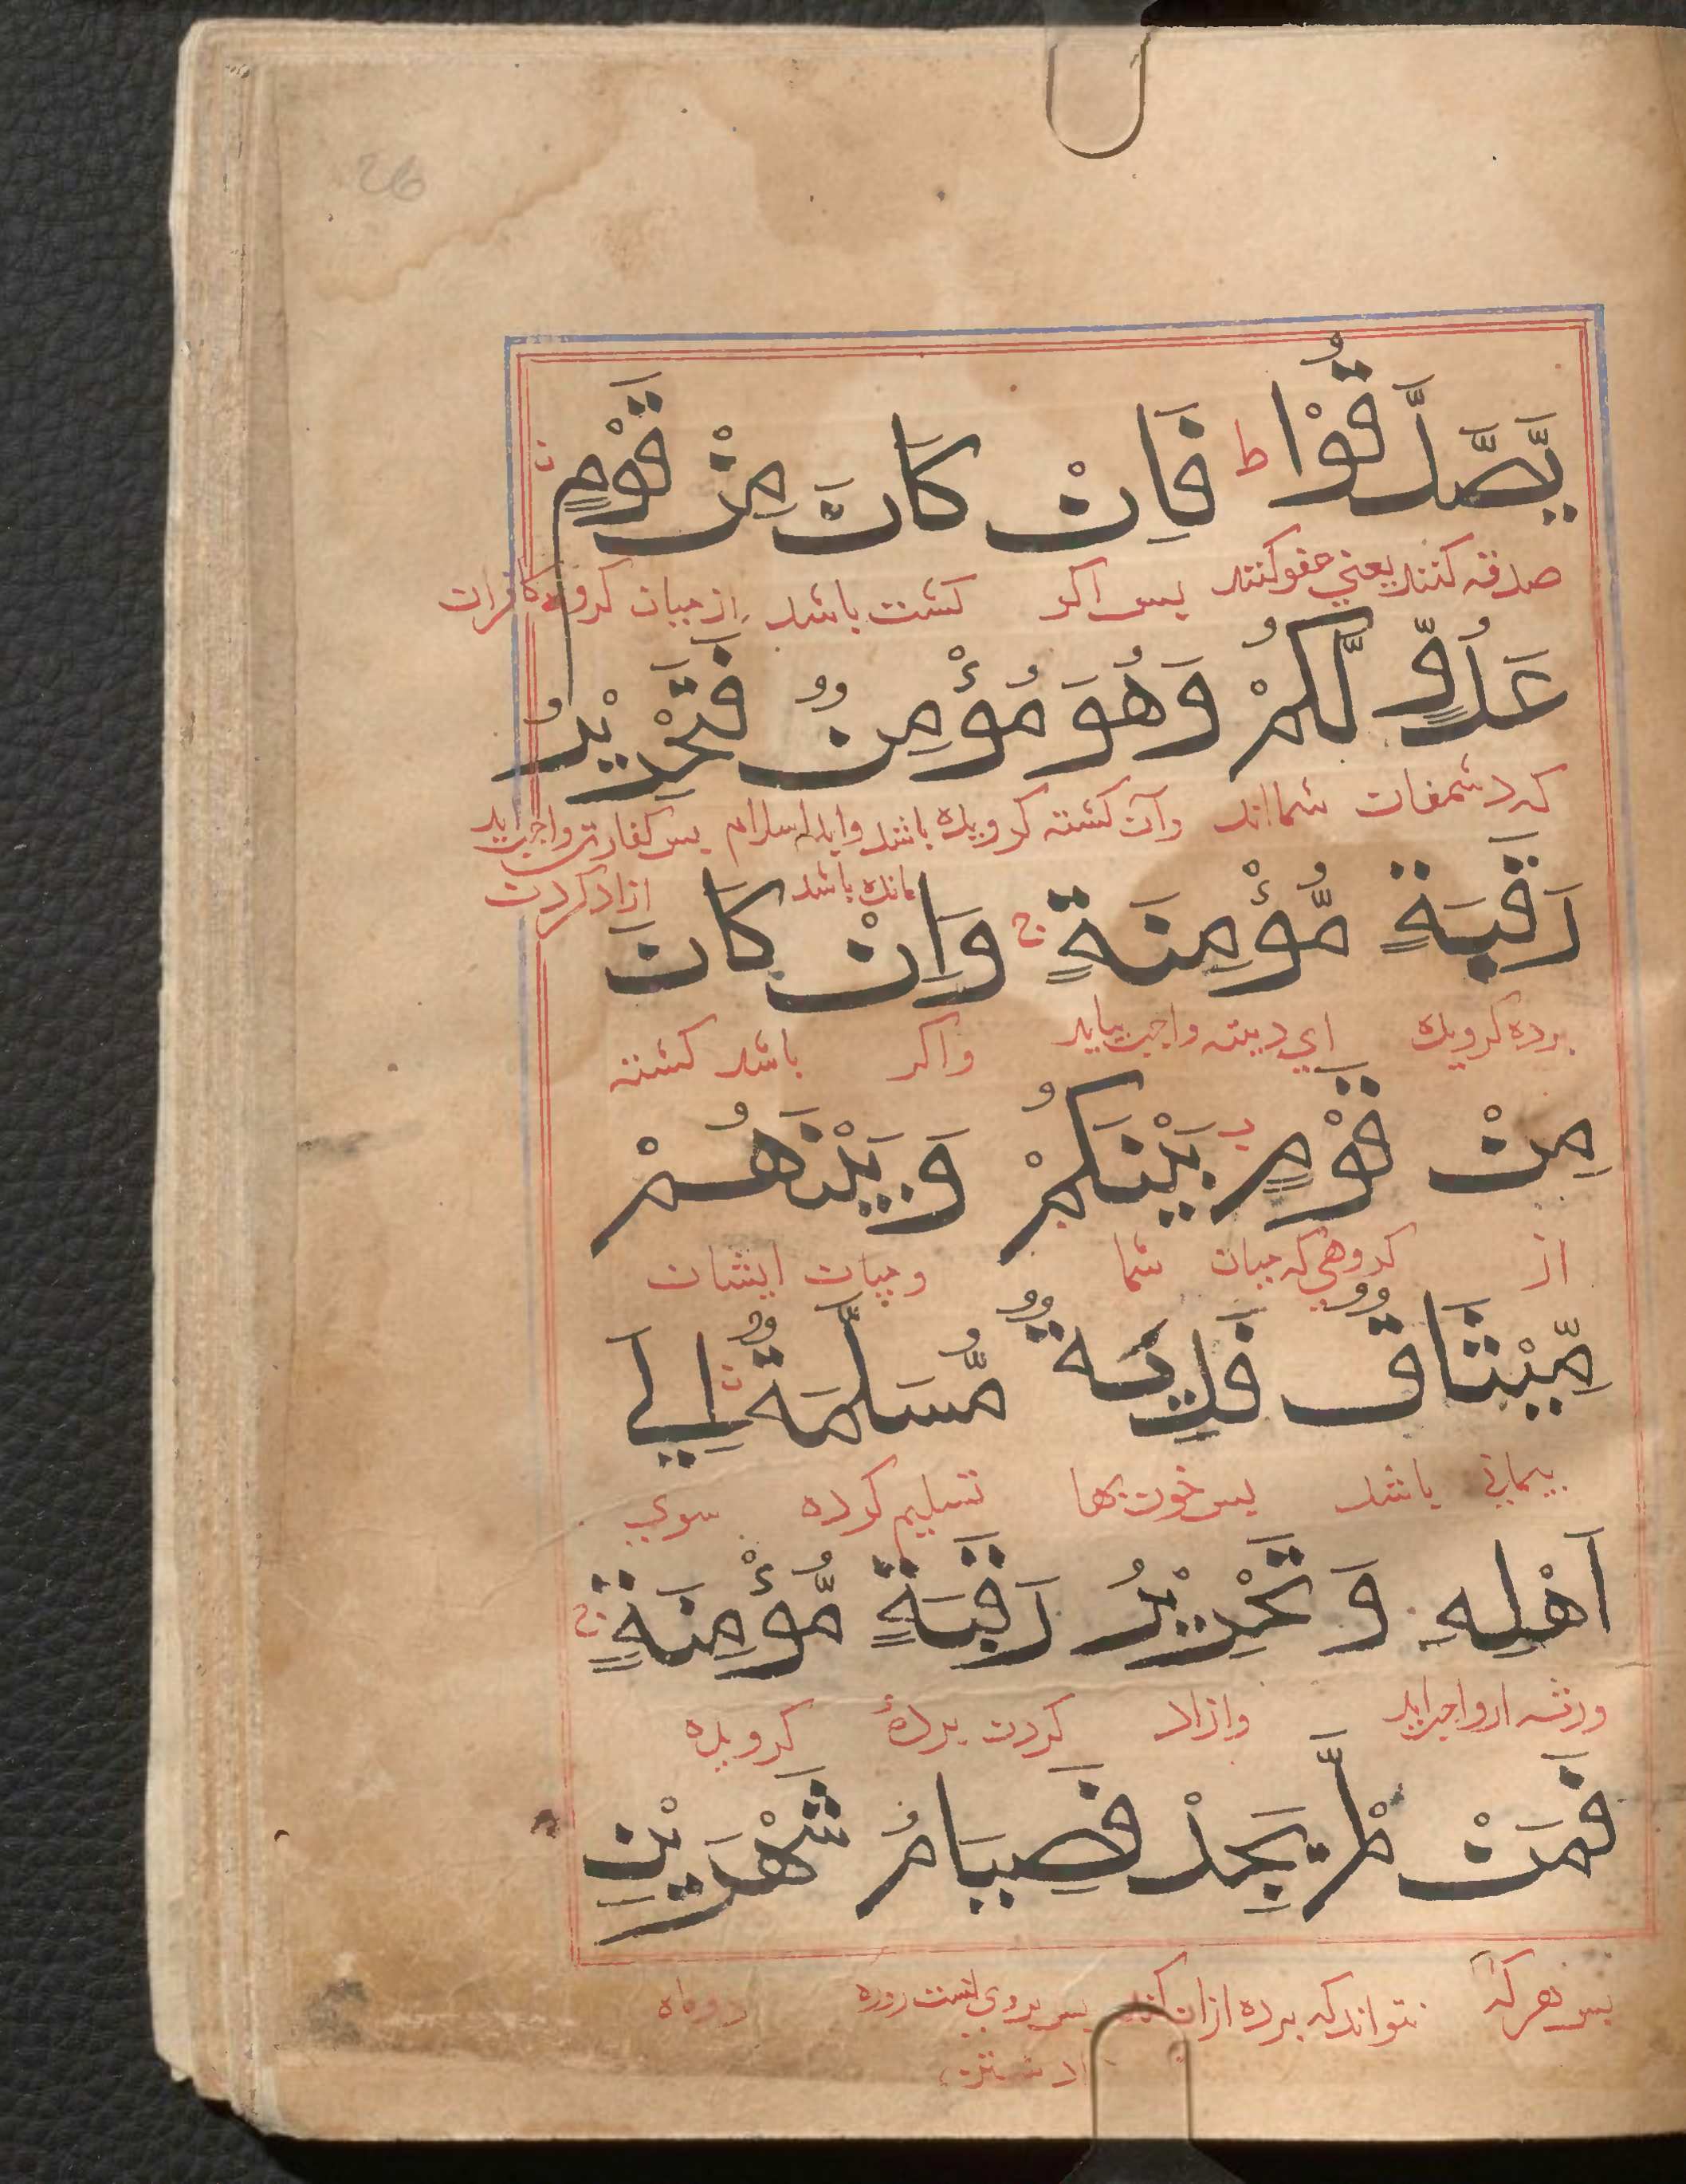 26
يَّصَّدَّقُوْا ط فَاِنْ كَانَ مِنْ قَوْمٍ
صدقه کنند یعني عفو کنند پس اکر کشته باشد از میان کروه کافران
عَدُوٍّ لَّكُمْ وَهُوَ مُؤْمِنٌ فَتَحْرِيْرُ
که دشمنان شمااند وآن کشته کرویده باشد واهل اسلام پس کفارت واجب اید
مانده باشد ازاد کردن
رَقَبَةٍ مُّؤْمِنَةٍ ج وَاِنْ كَانَ
برده کرویده اي دیته واجب نیاید واکر باشد کشته
مِنْ قَوْمٍ بَيْنَكُمْ وَبَيْنَهُمْ
از کروهي که میان شما و میان ایشان
مِّيْثَاقٌ فَدِيَةٌ مُّسَلَّمَةٌ اِلٰي
پیماني باشد پس خون بها تسلیم کرده سوي
اَهْلِهِ وَتَحْرِيْرُ رَقَبَةٍ مُّؤْمِنَةٍ ج
ورثه او واجب اید وازاد کردن بردهٔ کرویده
فَمَنْ لَّمْ يَجِدْ فَصِيَامُ شَهْرَيْنِ
پس هر که نتواند که برده ازاد کند پس بروي است روزه دو ماه